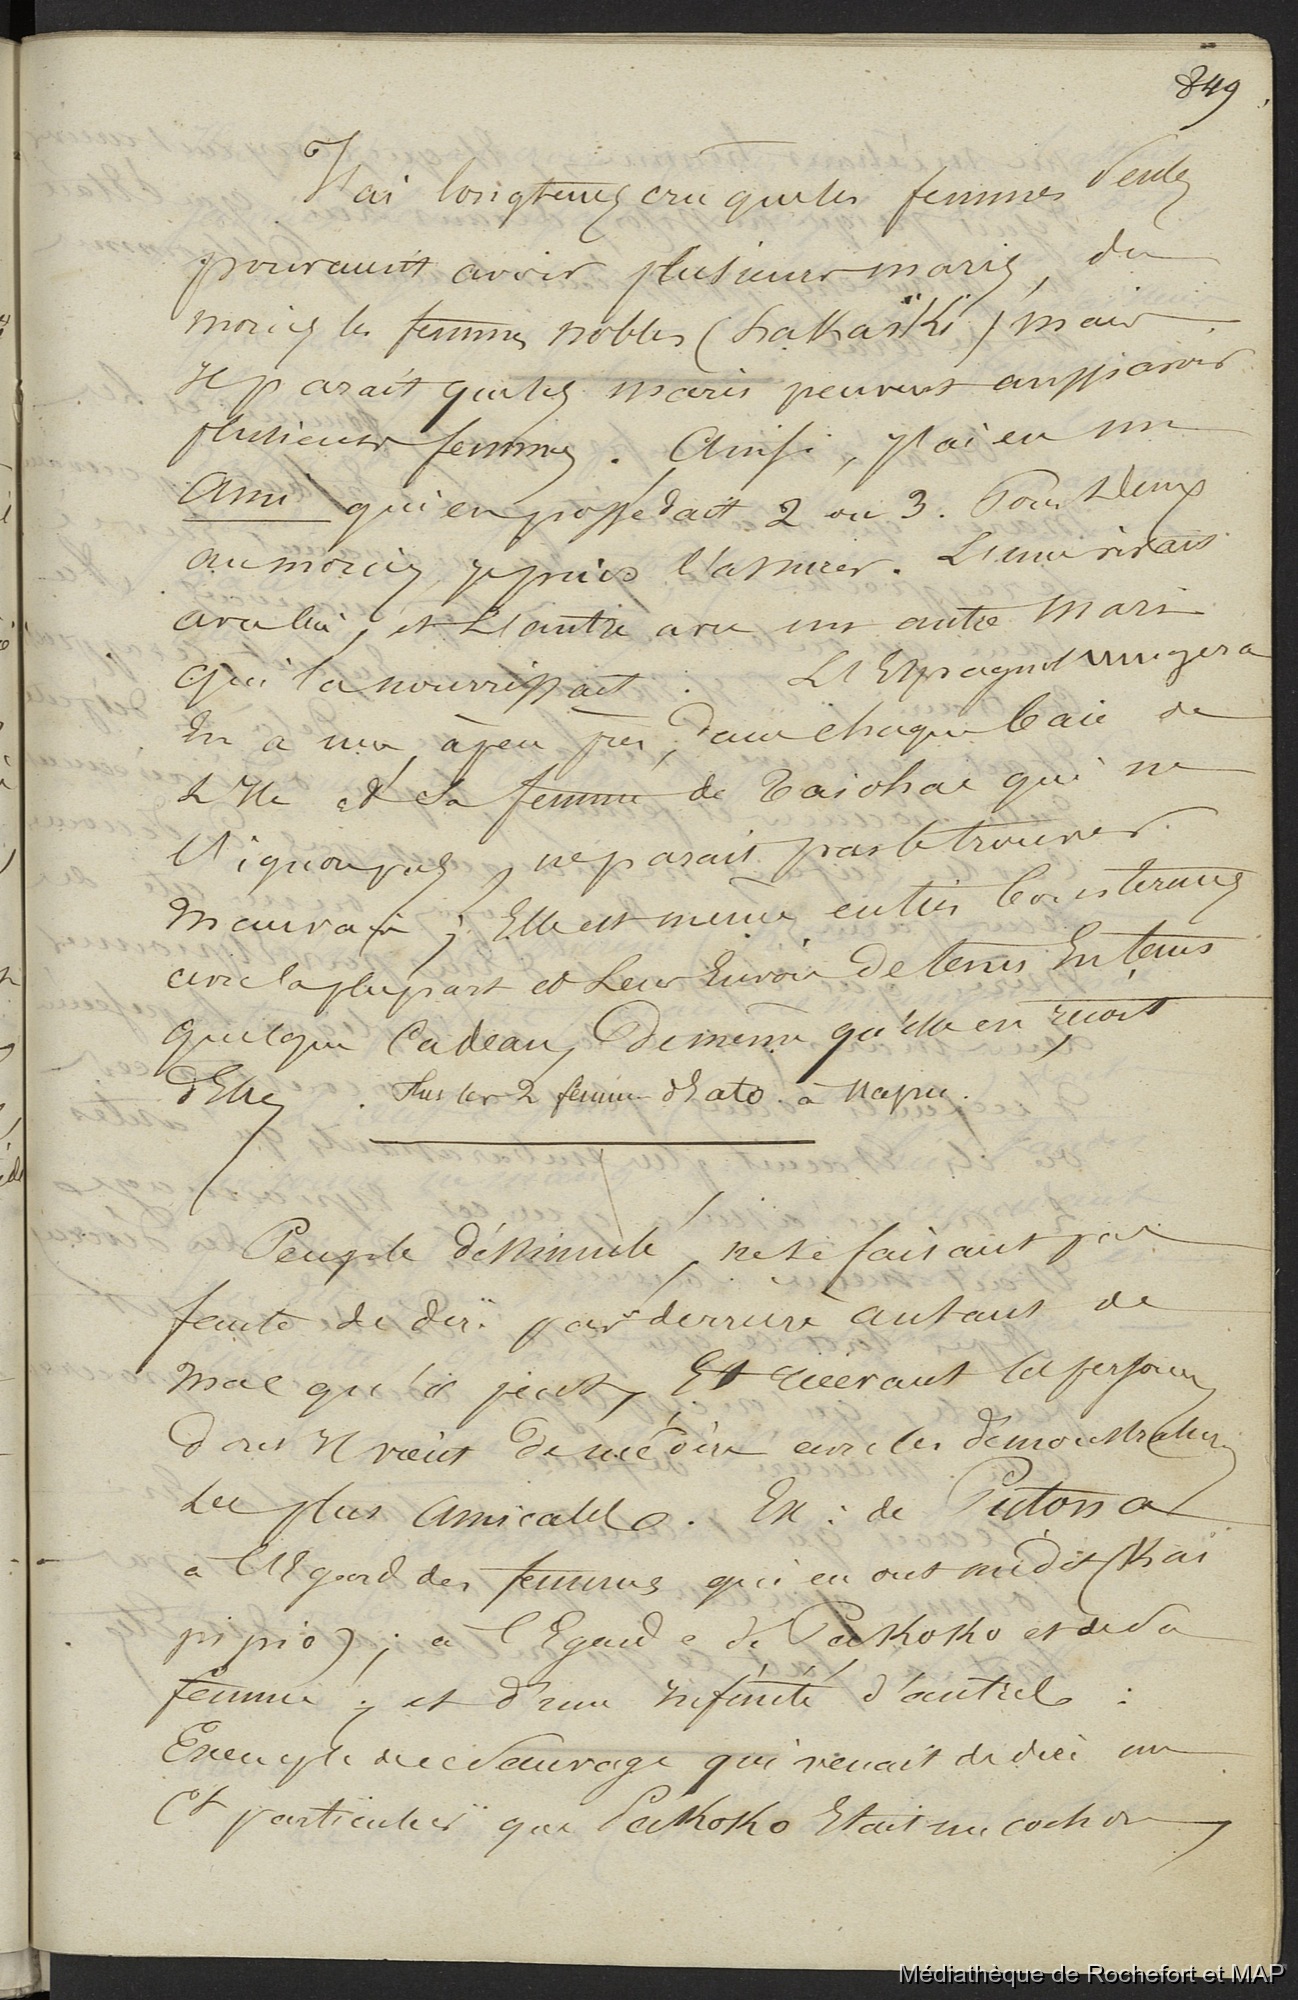 849
J'ai longtems cru que les femmes seules
pouvaient avoir plusieurs maris, du
moins les femmes nobles (hakaïki) mais
il parait que les maris peuvent aussi avoir
plusieurs femmes. Ainsi, j'ai eu un
Ami qui en possédait 2 ou 3. Pour deux
au moins, je puis l'assurer. L'une vivait
avec lui, et L'autre avec un autre mari
qui la nourrissait. L'Espagnol
En a une, à peu près, dans chaque Baie de
L'Ile et sa femme de Taiohae qui ne
l'ignore pas, ne parait pas le trouver
mauvais ; Elle est même en très bons termes
avec la plupart et leur Envoie de tems En tems
quelque Cadeau, de même qu'elle en reçoit
d'Elles. Plus les 2 femmes d'Eato à Hapu.
Peuple dissimulé, ne se faisant pas
faute de dire par derrière autant de
mal qu'il peut, Et recevant la personne
dont Il vient de médire avec les démonstrations
les plus Amicales. Ex : de
a l'Egard des femmes qui en ont médit (Kaï
pipio) ; a l'Egard de Pakoko et de sa
femme ; et d'une infinité d'autres :
Exemple de ce Sauvage qui venait de dire un
Et particulier que Pakoko Etait un cochon,
Médiathèque de Rochefort et MAP